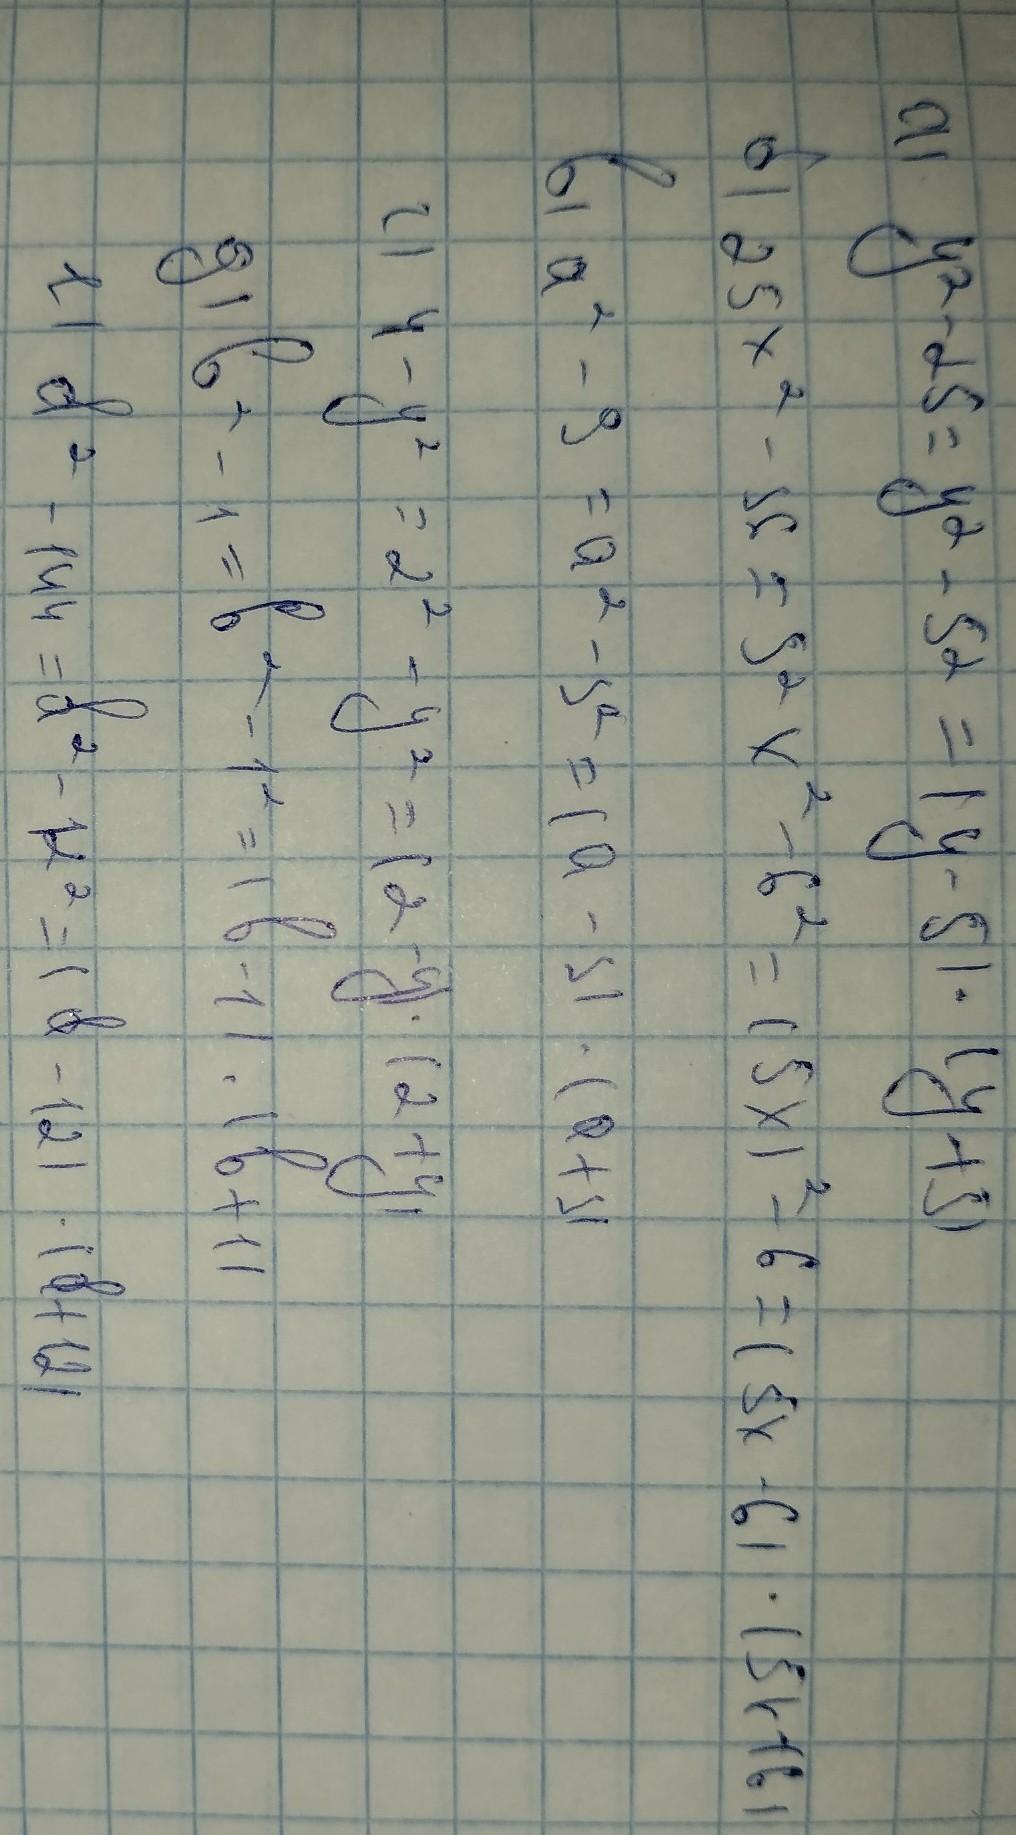 а) y² - 25 = y² - 5² = (y - 5) · (y + 5)
б) 25x² - 36 = 5² x² - 6² = (5x)² - 6 = (5x - 6) · (5x + 6)
в) a² - 9 = a² - 3² = (a - 3) · (a + 3)
г) 4 - y² = 2² - y² = (2 - y) · (2 + y)
g) b² - 1 = b² - 1² = (b - 1) · (b + 1)
- 144 = - 12² = - 12) · + 12)